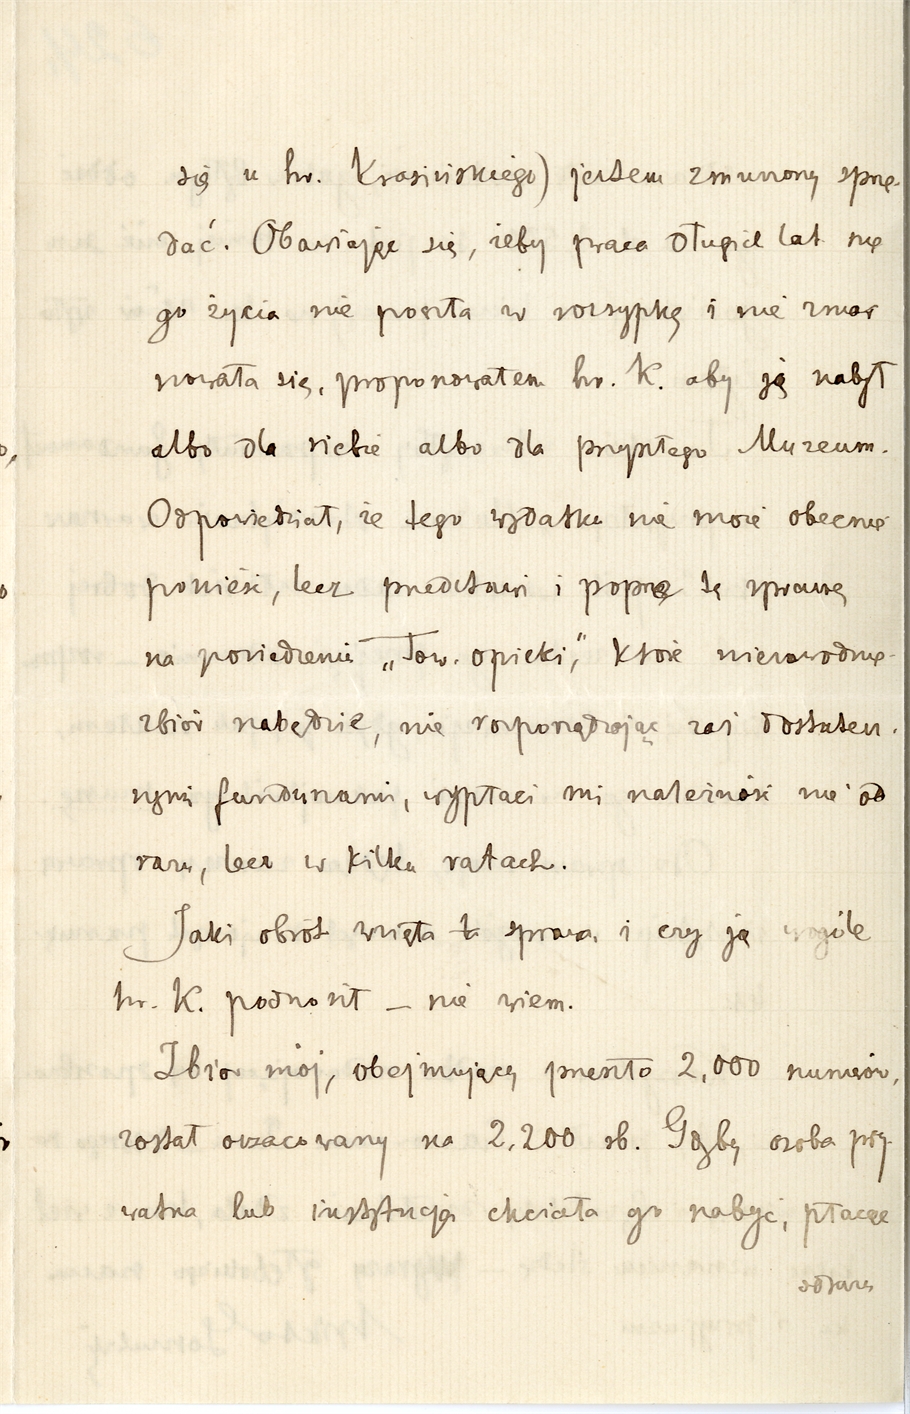 się u hr. Krasińskiego) jestem zmuszony sprze-
dać. Obawiając się, żeby praca długich lat me
go życia nie poszła w rozsypkę i nie zmar
nowała się, proponowałem hr. K. aby ją nabył
albo dla siebie albo dla przyszłego Muzeum.
Odpowiedział, że tego wydatku nie może obecnie
ponieść, lecz przedstawi i poprze tę sprawę
na posiedzeniu „Tow. opieki," które niezawodnie
zbiór nabędzie, nie rozporządzając zaś dostatecz-
nymi funduszami, wypłaci mi należność nie od
razu, lecz w kilku ratach.
Jaki obrót wzięła ta sprawa i czy ją wogóle
hr. K. podnosił — nie wiem.
Zbiór mój, obejmujący przeszło 2,000 numerów,
został oszacowany na 2,200 rb. Gdyby osoba pry-
watna lub instytucja chciała go nabyć, płacąc
odrazu